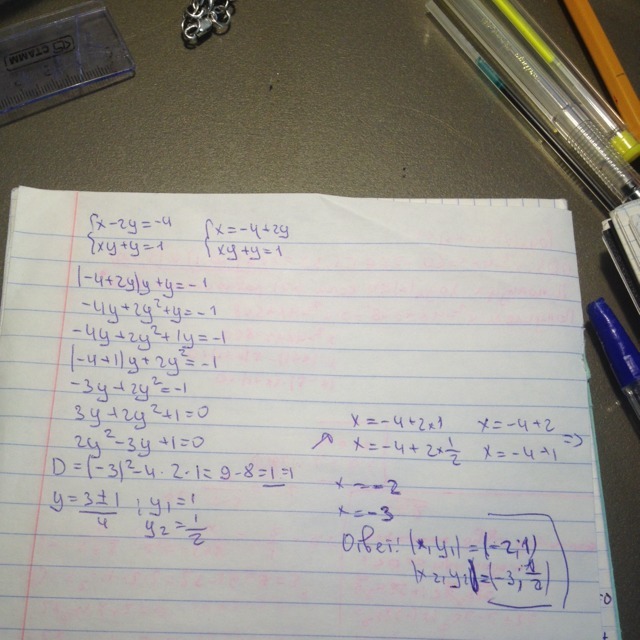 СТАММ
{x-2y=-4 {x=-4+2y
{xy+y=1 {xy+y=1
(-4+2y)y+y=-1
-4y+2y²+y=-1
-4y+2y²+1y=-1
(-4+1)y+2y²=-1
-3y+2y²=-1
3y+2y²+1=0
2y²-3y+1=0
D=(-3)²-4·2·1=9-8=1=1
y=3±1/4 ; y₁=1
y₂=1/2
↗ x=-4+2×1 x=-4+2
x=-4+2×1/2 x=-4+1 =>
x=-2
x=-3
Ответ: (x₁,y₁)=(-2;1)
(x₂,y₂)=(-3;1/2)